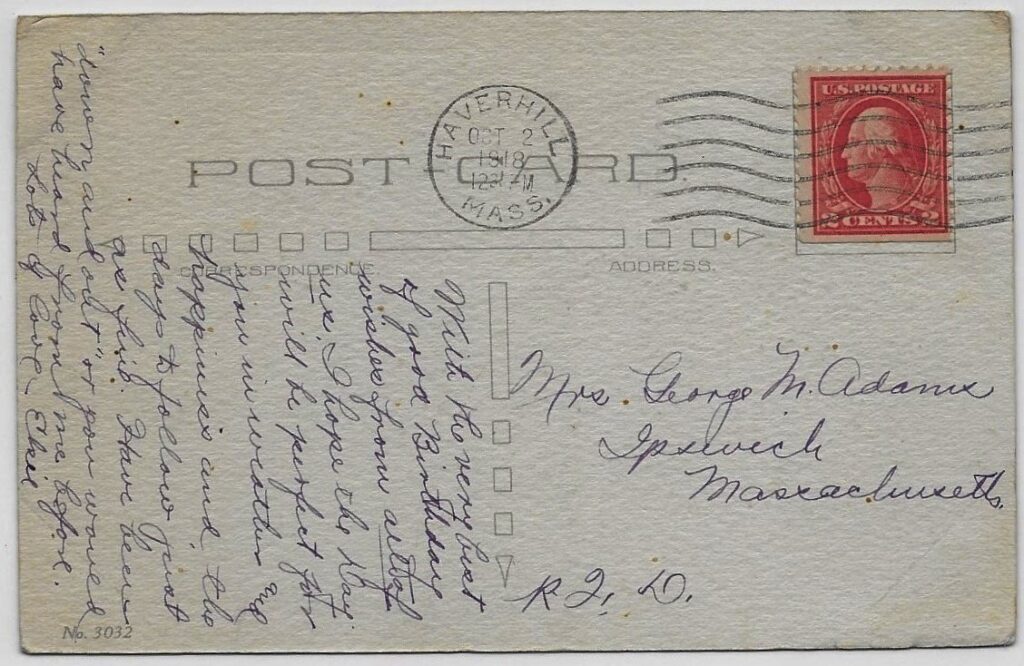 HAVERHILL
OCT 2
1918
12
M
MASS.
U.S. POSTAGE
2 CENTS 2
POST CARD.
CORRESPONDENCE.
ADDRESS.
With the very best
of good Birthday
wishes from all of
us. I hope the day
will be perfect for
you in weather and
happiness and the
days to follow just
as full. Have been
"down and out" or you would
have heard from me before.
Lots of love - Elsie
Mrs. George M. Adams
Ipswich
Massachusetts.
R. F. D.
No. 3032